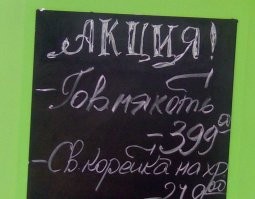 АКЦИЯ!
-Гов мякоть
-399 00
-Св корейка на хр